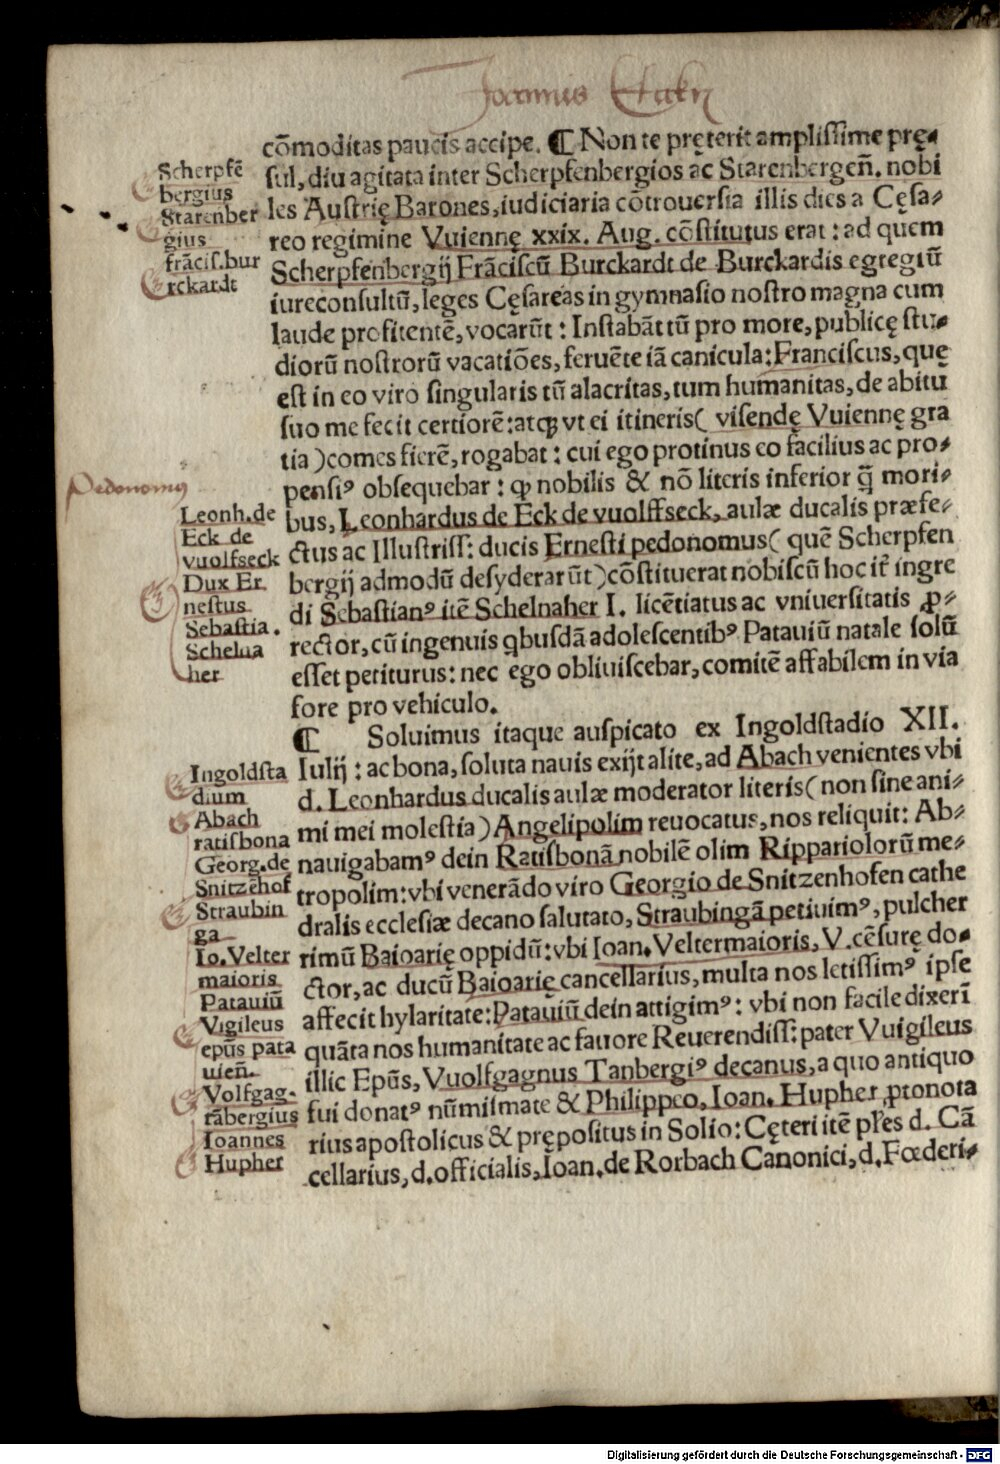 Joannis Eckij
cōmoditas paucis accipe. ¶ Non te pręterit amplissime prę⸗
sul, diu agitata inter Scherpfenbergios ac Starenbergeñ. nobi
les Austrię Barones, iudiciaria cōtrouersia illis dies a Cęsa⸗
reo regimine Vuiennę xxix. Aug. cōstitutus erat : ad quem
Scherpfenbergij Frāciscū Burckardt de Burckardis egregiū
iureconsultū, leges Cęsareas in gymnasio nostro magna cum
laude profitentē, vocarūt : Instabāt tū pro more, publicę stu⸗
diorū nostrorū vacatiōes, feruēte iā canicula: Franciscus, quę
est in eo viro singularis tū alacritas, tum humanitas, de abitu
suo me fecit certiorē: atqꝫ vt ei itineris( visendę Vuiennę gra
tia ) comes fierē, rogabat : cui ego protinus eo facilius ac pro⸗
pensiꝰ obsequebar : ꝙ nobilis & nō literis inferior q̄ mori⸗
bus, Leonhardus de Eck de vuolffseck, aulæ ducalis præfe⸗
ctus ac Illustriss: ducis Ernesti pedonomus( quē Scherpfen
bergij admodū desyderarūt ) cōstituerat nobiscū hoc iť ingre
di Sebastianꝰ itē Schelnaher I. licētiatus ac vniuersitatis ꝓ⸗
rector, cū ingenuis qbusdā adolescentibꝰ Patauiū natale solū
esset petiturus: nec ego obliuiscebar, comitē affabilem in via
fore pro vehiculo.
¶ Soluimus itaque auspicato ex Ingoldstadio XII.
Iulij : ac bona, soluta nauis exijt alite, ad Abach venientes vbi
d. Leonhardus ducalis aulæ moderator literis( non sine ani⸗
mi mei molestia ) Angelipolim reuocatus, nos reliquit: Ab⸗
nauigabamꝰ dein Ratisbonā nobilē olim Rippariolorū me⸗
tropolim: vbi venerādo viro Georgio de Snitzenhofen cathe
dralis ecclesiæ decano salutato, Straubingā petiuimꝰ, pulcher
rimū Baioarię oppidū: vbi Ioan. Veltermaioris, V. cēsurę do⸗
ctor, ac ducū Baioarię cancellarius, multa nos letissimꝰ ipse
affecit hylaritate: Patauiū dein attigimꝰ : vbi non facile dixerī
quāta nos humanitate ac fauore Reuerendiss: pater Vuigileus
illic Epūs, Vuolfgagnus Tanbergiꝰ decanus, a quo antiquo
fui donatꝰ nūmismate & Philippeo, Ioan. Hupher ꝓtonota
rius apostolicus & prępositus in Solio: Cęteri itē pr̄es d. Cā
cellarius, d. officialis, Ioan. de Rorbach Canonici, d. Fœderi⸗
Scherpfē
bergius
Starenber
gius
frācis. bur
rckardt
Pedonomus
Leonh. de
Eck de
vuolfseck
Dux Er
nestus
Sebastia.
Schelna
her
Ingoldsta
dium
Abach
ratisbona
Georg. de
Snitzēhof
Straubin
ga
Io. Velter
maioris
Patauiū
Vigileus
epūs pata
uieñ.
Volfgag.
rābergius
Ioannes
Hupher
Digitalisierung gefördert durch die Deutsche Forschungsgemeinschaft - DFG